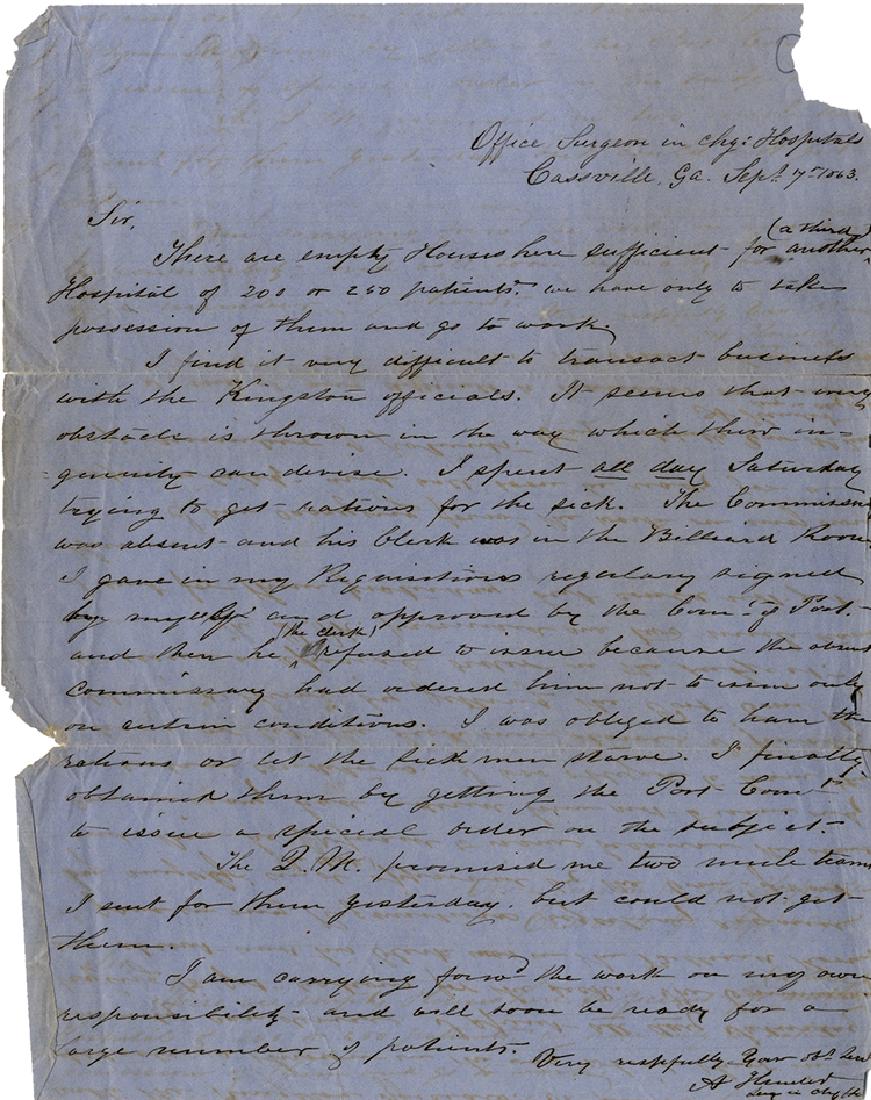 Office Surgeon in chg: Hospitals
Cassville, Ga. Sept. 7th 1863.
Sir,
(a third)
There are empty Houses here sufficient for another
Hospital of 200 or 250 patients. we have only to take
possession of them and go to work.
I find it very difficult to transact business
with the Kingston officials. It seems that every
obstacle is thrown in the way which their in-
genuity can devise. I spent all day Saturday
trying to get rations for the sick. The Commissary
was absent and his Clerk was in the Billiard Room
I gave in my Requisitions regularly signed
by myself and approved by the Com'd'g Post.
(the clerk)
and then he refused to issue because the absent
commissary had ordered him not to issue only
on certain conditions. I was obliged to have the
rations or let the sick men starve. I finally
obtained them by getting the Post Comdt
to issue a special order on the subject.
The Q.M. promised me two mule teams
I sent for them yesterday, but could not get
them.
I am carrying forwd the work on my own
responsibility and will soon be ready for a
large number of patients.
Very respfully Your obt Servt
A Hunter
Surg in chg